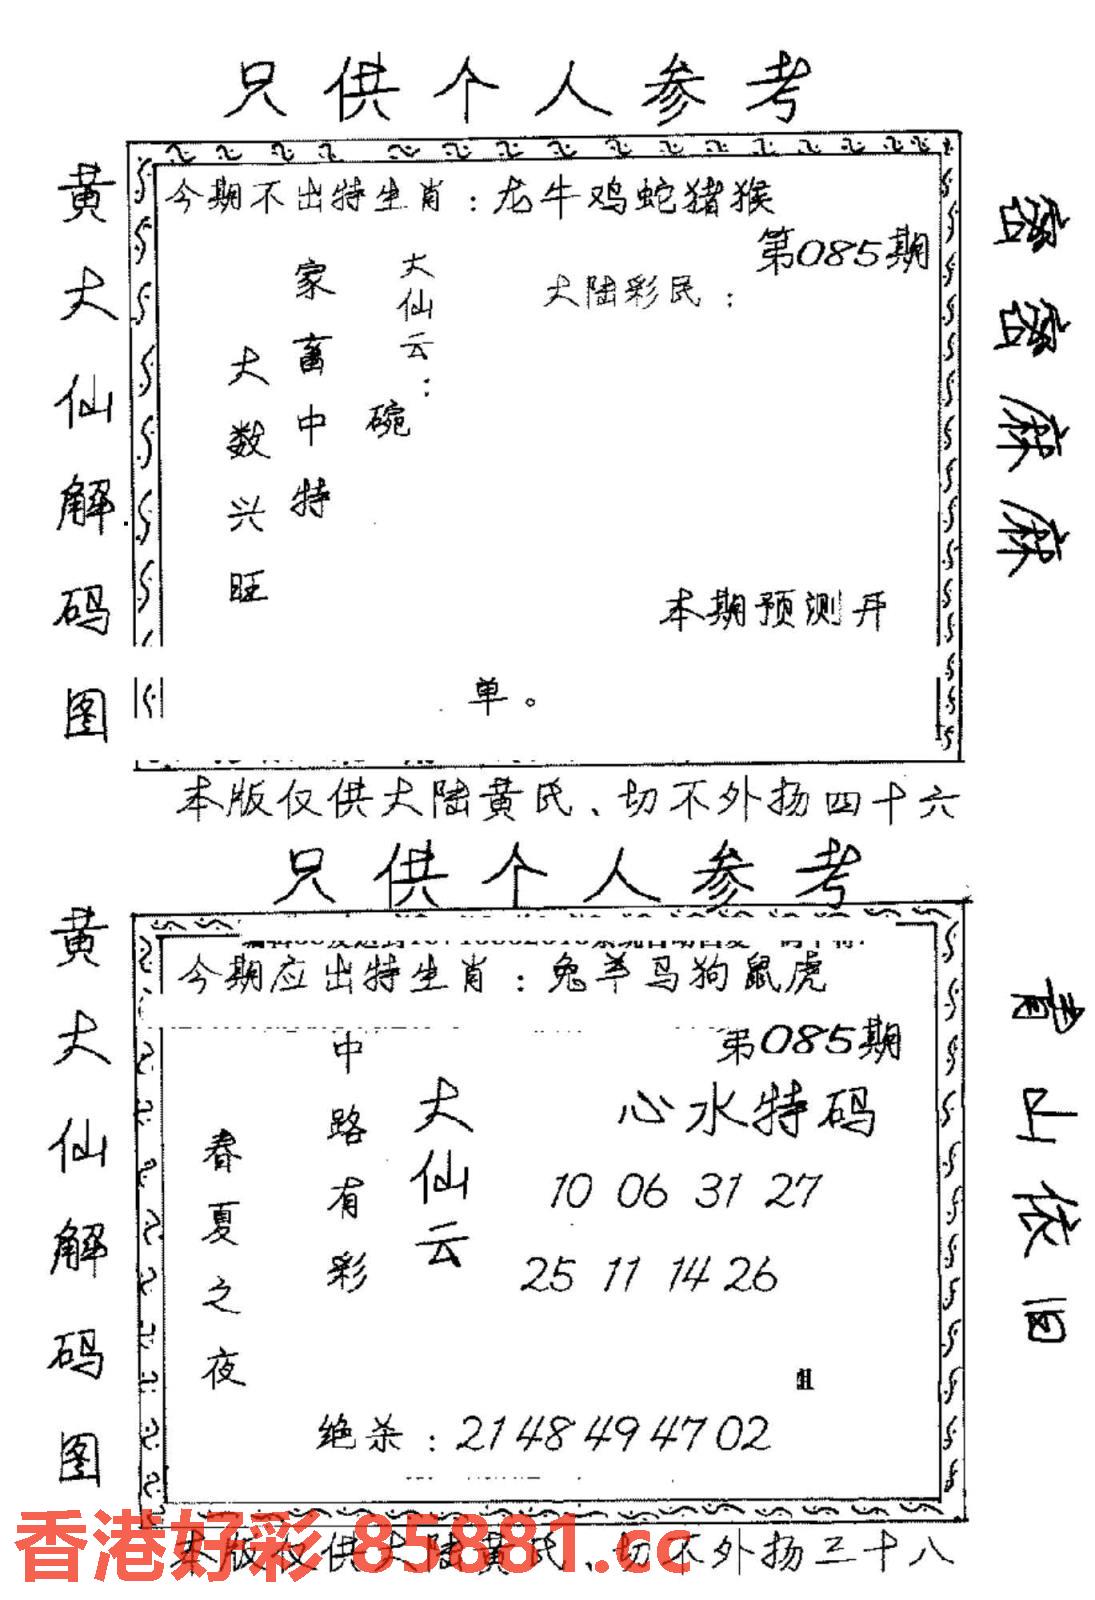 只供个人参考
黄大仙解码图
今期不出特生肖：龙牛鸡蛇猪猴
第085期
大陆彩民：
大仙云：
碗
家畜中特
大数兴旺
本期预测开
单。
密密麻麻
本版仅供大陆黄民、切不外扬四十六
只供个人参考
黄大仙解码图
今期应出特生肖：兔羊马狗鼠虎
第085期
心水特码
10 06 31 27
25 11 14 26
大仙云
中路有彩
春夏之夜
绝杀：21 48 49 47 02
青山依旧
本版仅供大陆黄民、切不外扬三十八
香港好彩 85881.cc